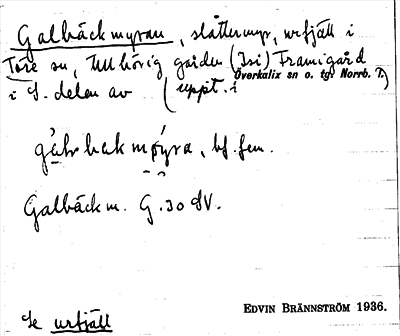 Galbäckmyran, slåttermyr, urfjäll i
Töre sn, tillhörig gården (Isi) Framigård
i S. delen av (uppt. i Överkalix sn o. tgl Norrb. l.)
bf. fem.
Galbäckm. G. 30 SV.
Se urfjäll
EDVIN BRÄNNSTRÖM 1936.